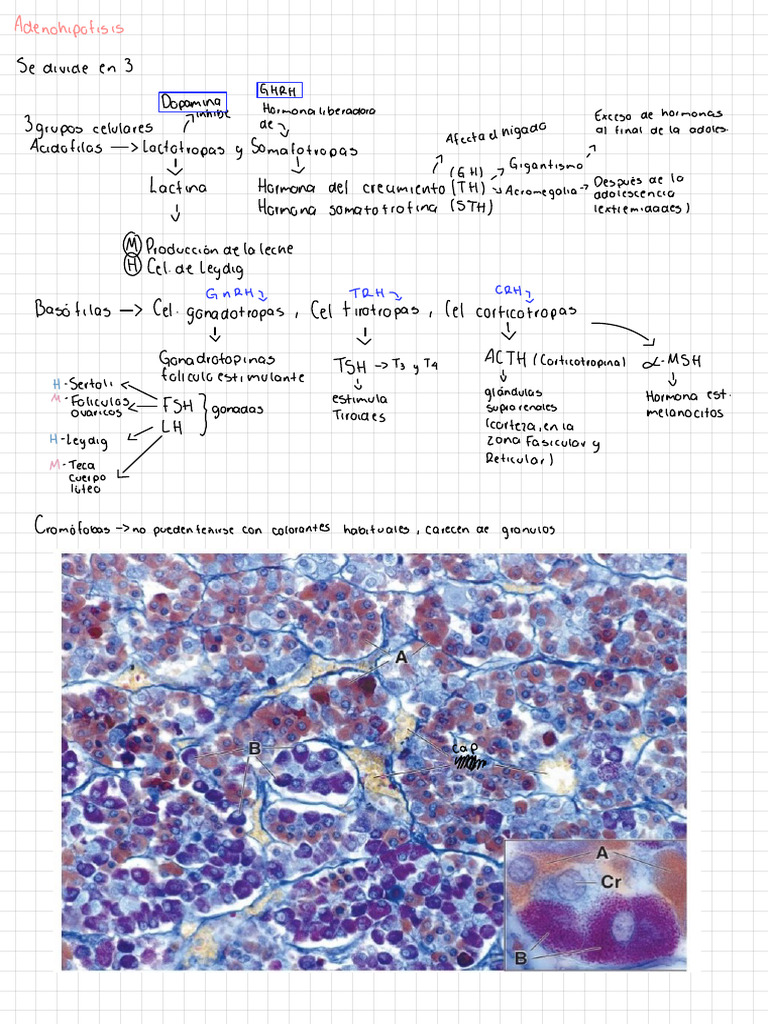 Adenohipofisis
Se divide en 3
Dopamina
inhibe
GHRH
Hormona liberadora
de
3 grupos celulares
Acidofilas → Lactotropas y Somatotropas
Afecta el higado
Exceso de hormonas
al final de la adoles.
Lactina
Hormona del crecumiento (TH)
(GH)
Gigantismo
Acromegalia → Despues de la
adolescencia
(extremidades)
Hormona somatotrofina (STH)
M Producción de la leche
H Cel. de Leydig
GnRH
TRH
CRH
Basófilas → Cel. gonadotropas, Cel tirotropas, Cel corticotropas
Gonadrotopinas
foliculo estimulante
TSH → T3 y T4
ACTH (Corticotropina)
α-MSH
H - Sertoli
M - Foliculos
ovaricos
FSH
LH
gonadas
H - Leydig
M - Teca
cuerpo
lúteo
estimula
Tiroides
glándulas
suprarenales
(corteza, en la
zona Fasicular y
Reticular)
Hormona est.
melanocitos
Cromófobas → no pueden teñirse con colorantes habituales, carecen de granulos
A
B
cap
A
Cr
B